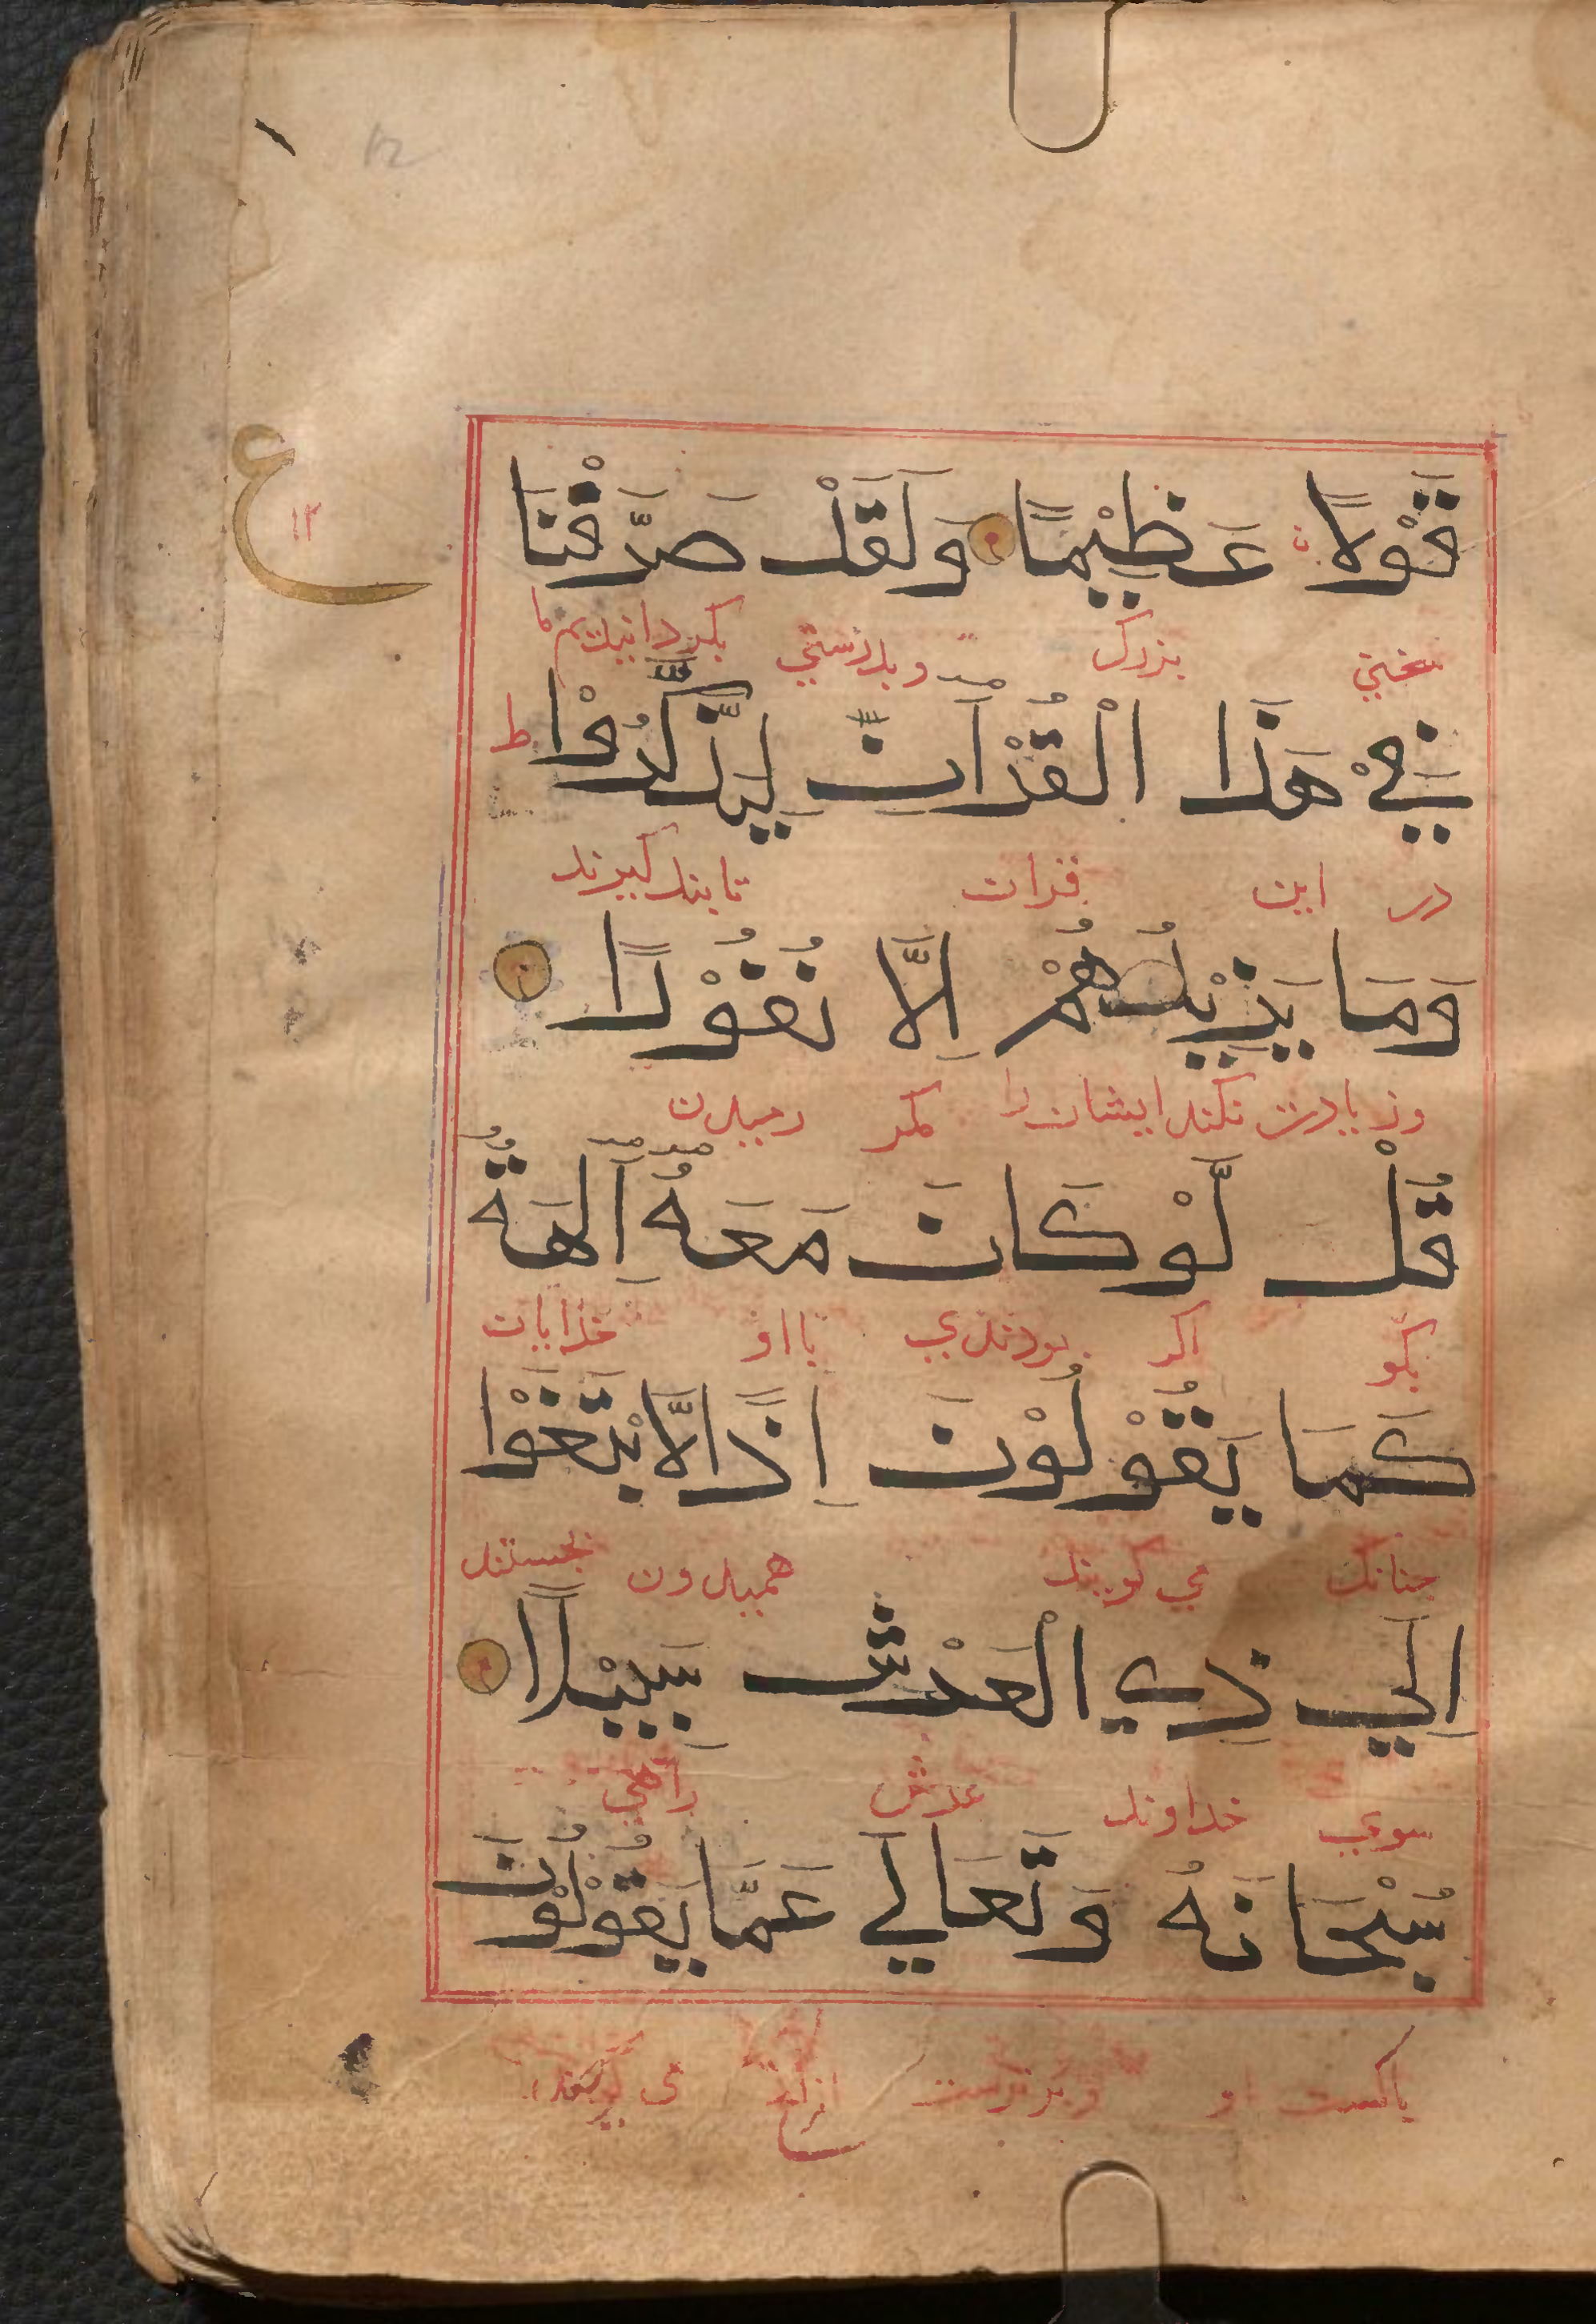 ع
١٢
12
قَوْلًا عَظِيْمًا وَلَقَدْ صَرَّفْنَا
سخنی بزرک وبدرستی بکردانیدیم ما
فِيْ هَذَا الْقُرْآنِ لِيَذَّكَّرُوْا ط
در این قران تا پند کیرند
وَمَا يَزِيْدُهُمْ اِلَّا نُفُوْرًا
وزیادت نکند ایشان را مکر رمیدن
قُلْ لَّوْ كَانَ مَعَهُ آلِهَةٌ
بکو اکر بودندی با او خدایان
كَمَا يَقُوْلُوْنَ اِذًا لَّابْتَغَوْا
جنانک می کویند همیدون بجستند
اِلَي ذِي الْعَرْشِ سَبِيْلًا
سوی خداوند عرش راهی
سُبْحَانَهُ وَتَعَالَي عَمَّا يَقُوْلُوْنَ
باکست او وبرترست ازانچ می کویند